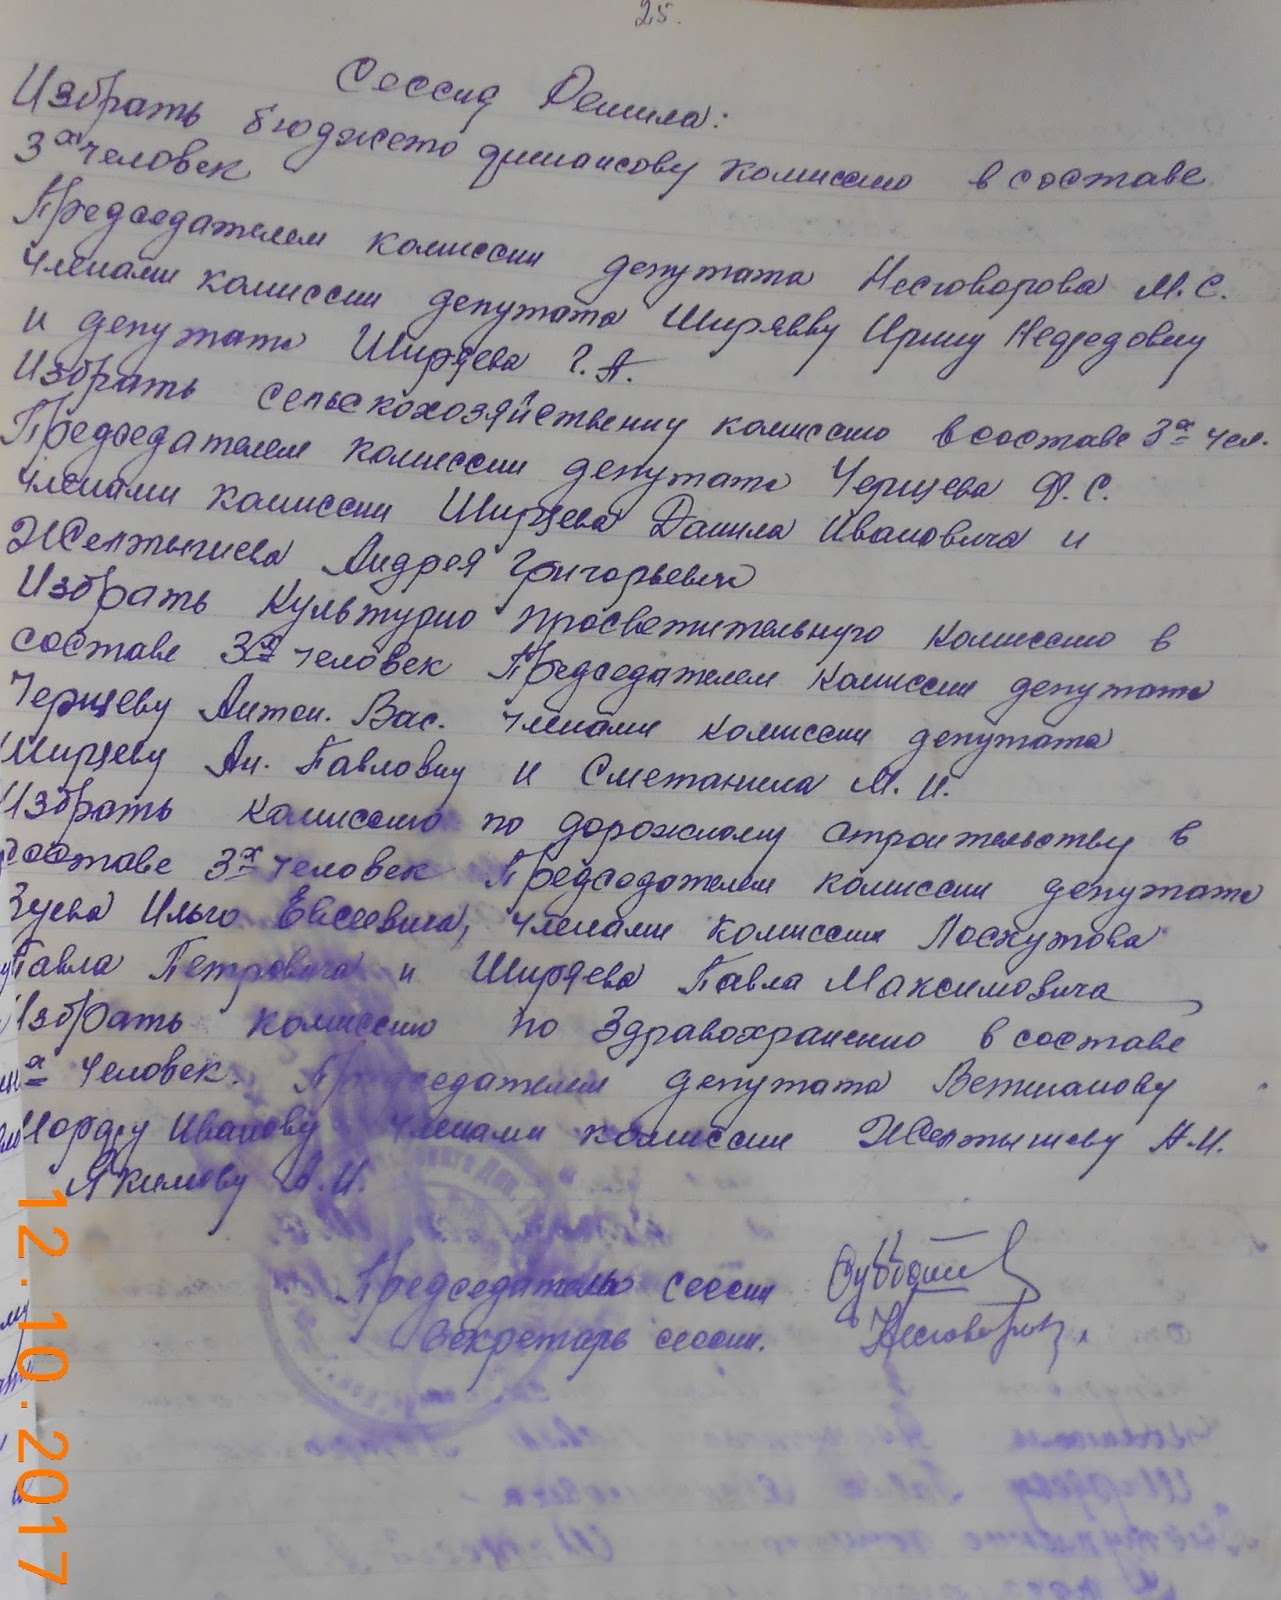 25.
Сессия Решила:
Избрать бюджето финансову комиссию в составе
3х человек
Председателем комиссии депутата Несговорова М.С.
Членами комиссии депутата Ширяеву Ирину
и депутата Ширяева Г.А.
Избрать сельскохозяйственну комиссию в составе 3х чел.
Председателем комиссии депутата Черцева Ф.С.
Членами комиссии Ширяева Данила Ивановича и
Желтышева Андрея Григорьевич
Избрать Культурно просветительную комиссию в
составе 3х человек Председателем комиссии депутата
Черцеву Антон. Вас. Членами комиссии депутата
Ширяеву Ан. Павловну и Сметанина М.И.
Избрать комиссию по дорожному строительству в
составе 3х человек Председателем комиссии депутата
Зуева Илью Евсеевича, Членами комиссии Лоскутова
Павла Петровича и Ширяева Павла Максимовича
Избрать комиссию по Здравохранению в составе
х человек. Председателем депутата
Иванову Членами комиссии Желтышеву А.И.
Якимову А.И.
Председатель сессии
Секретарь сессии.
12.10.2017